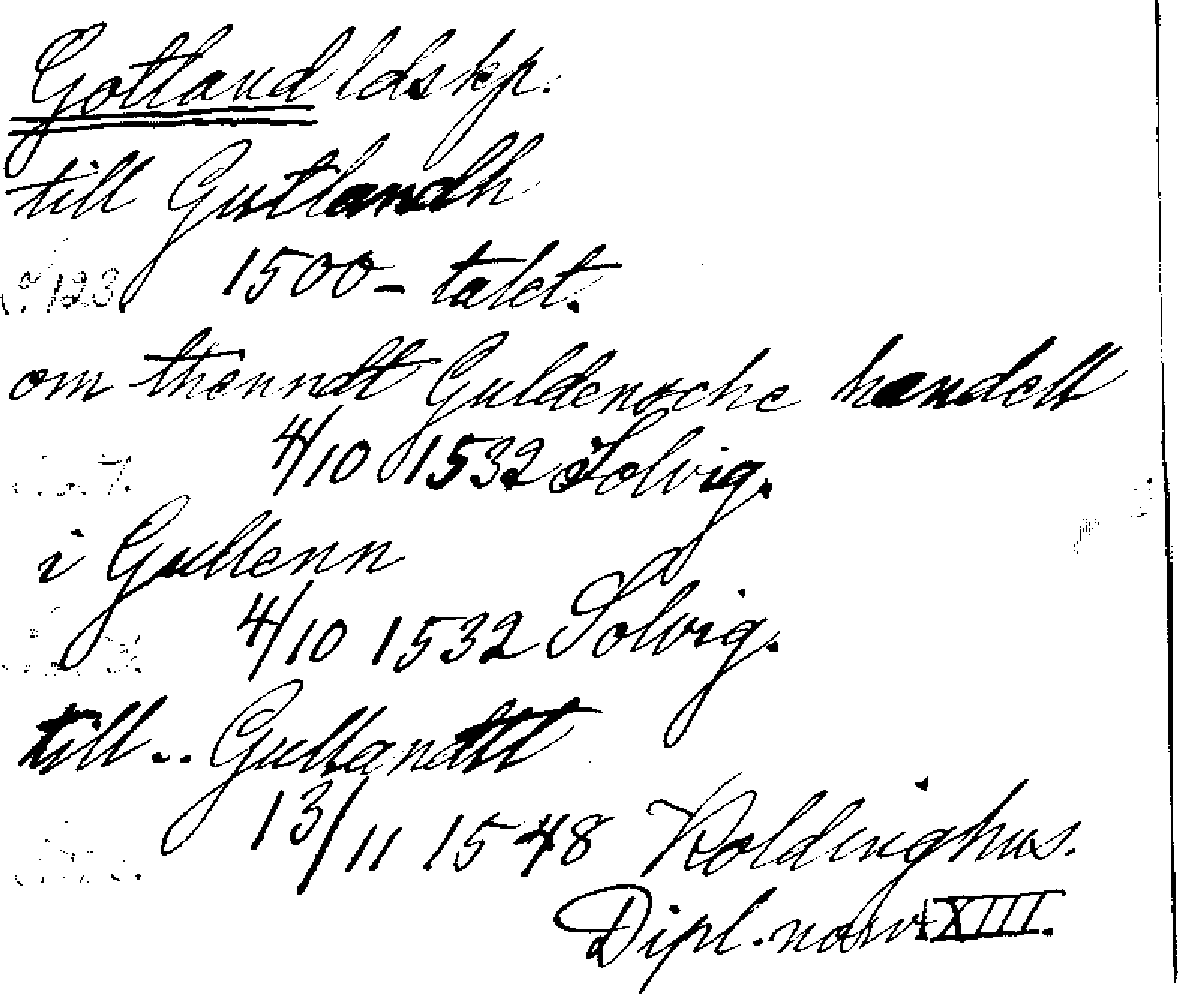 Gotland ldskp.
till Gutlandh
s. 123. 1500-talet.
om thenndt Guldensche handell
4/10 1532 Solvig.
i Gullenn
4/10 1532 Solvig.
till.. Gullandtt
13/11 1548 Koldinghus.
Dipl. norv. XIII.